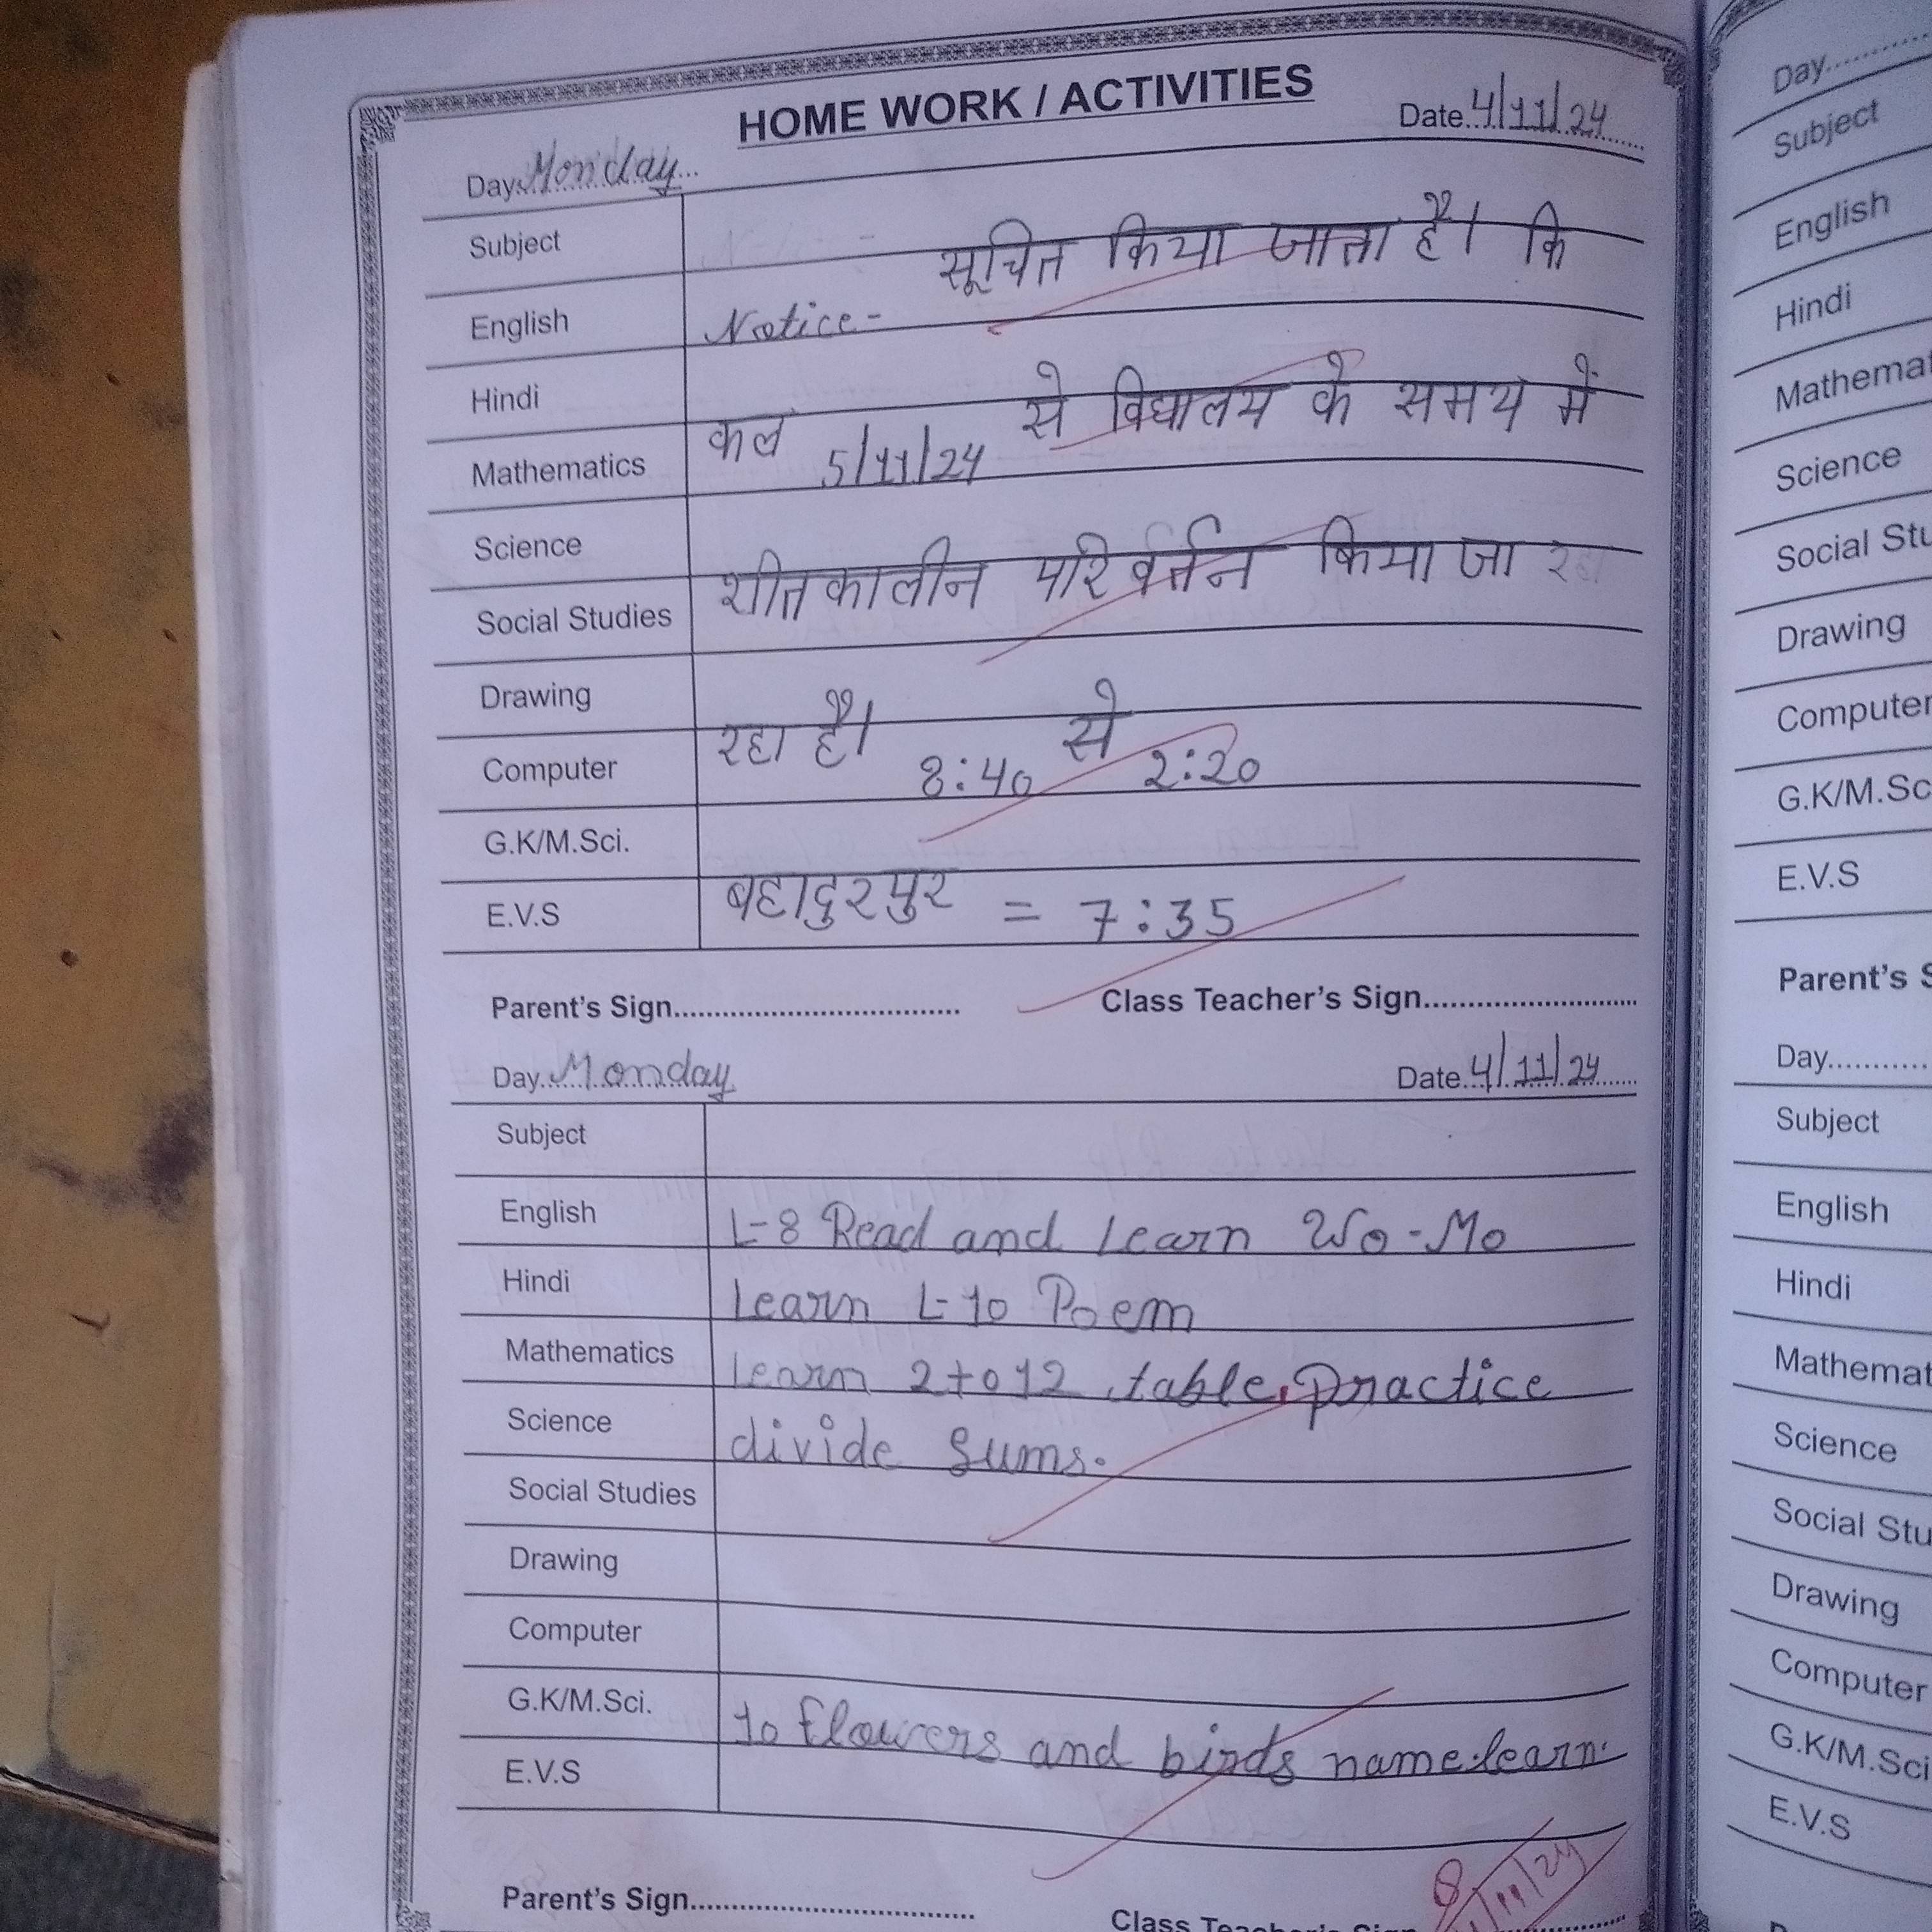 HOME WORK / ACTIVITIES
Day Monday Date 4/11/24
Subject सूचित किया जाता है। कि
English Notice-
Hindi
Mathematics कल 5/11/24 से विद्यालय के समय में
Science
Social Studies शीतकालीन परिवर्तन किया जा
Drawing
Computer रहा है। 8:40 से 2:20
G.K/M.Sci.
E.V.S बहादुरपुर = 7:35
Parent's Sign.................................. Class Teacher's Sign..........................
Day Monday Date 4/11/24
Subject
English L-8 Read and Learn Wo-Mo
Hindi Learn L-10 Poem
Mathematics Learn 2 to 12 table, practice
Science divide Sums.
Social Studies
Drawing
Computer
G.K/M.Sci. 10 flowers and birds name learn.
E.V.S
Parent's Sign..................................
Class
Day
Subject
English
Hindi
Science
Drawing
Computer
E.V.S
Parent's
Day
Subject
English
Hindi
Science
Drawing
Computer
G.K/M.Sci
E.V.S